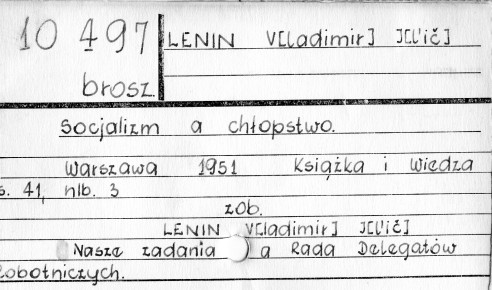 10 497 LENIN V[ladimir] I[l'ič]
brosz.
Socjalizm a chłopstwo.
Warszawa 1951 Książka i Wiedza
s. 41, nlb. 3
zob.
LENIN V[ladimir] I[l'ič]
Nasze zadania a Rada Delegatów
Robotniczych.